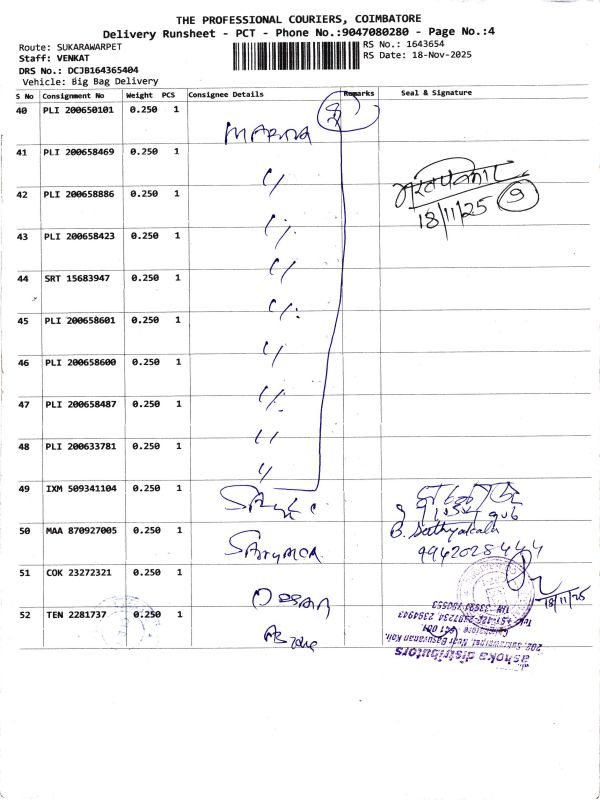 THE PROFESSIONAL COURIERS, COIMBATORE
Delivery Runsheet - PCT - Phone No.:9047080280 - Page No.:4
Route: SUKARAWARPET
RS No.: 1643654
Staff: VENKAT
RS Date: 18-Nov-2025
DRS No.: DCJB164365404
Vehicle: Big Bag Delivery
S No Consignment No Weight PCS Consignee Details Remarks Seal & Signature
40 PLI 200650101 0.250 1
41 PLI 200658469 0.250 1
42 PLI 200658886 0.250 1
18/11/25 9
43 PLI 200658423 0.250 1
44 SRT 15683947 0.250 1
45 PLI 200658601 0.250 1
46 PLI 200658600 0.250 1
47 PLI 200658487 0.250 1
48 PLI 200633781 0.250 1
49 IXM 509341104 0.250 1
50 MAA 870927005 0.250 1
B. Sathyakala
9942028444
51 COK 23272321 0.250 1
18/11/25
52 TEN 2281737 0.250 1
ashoka distributors